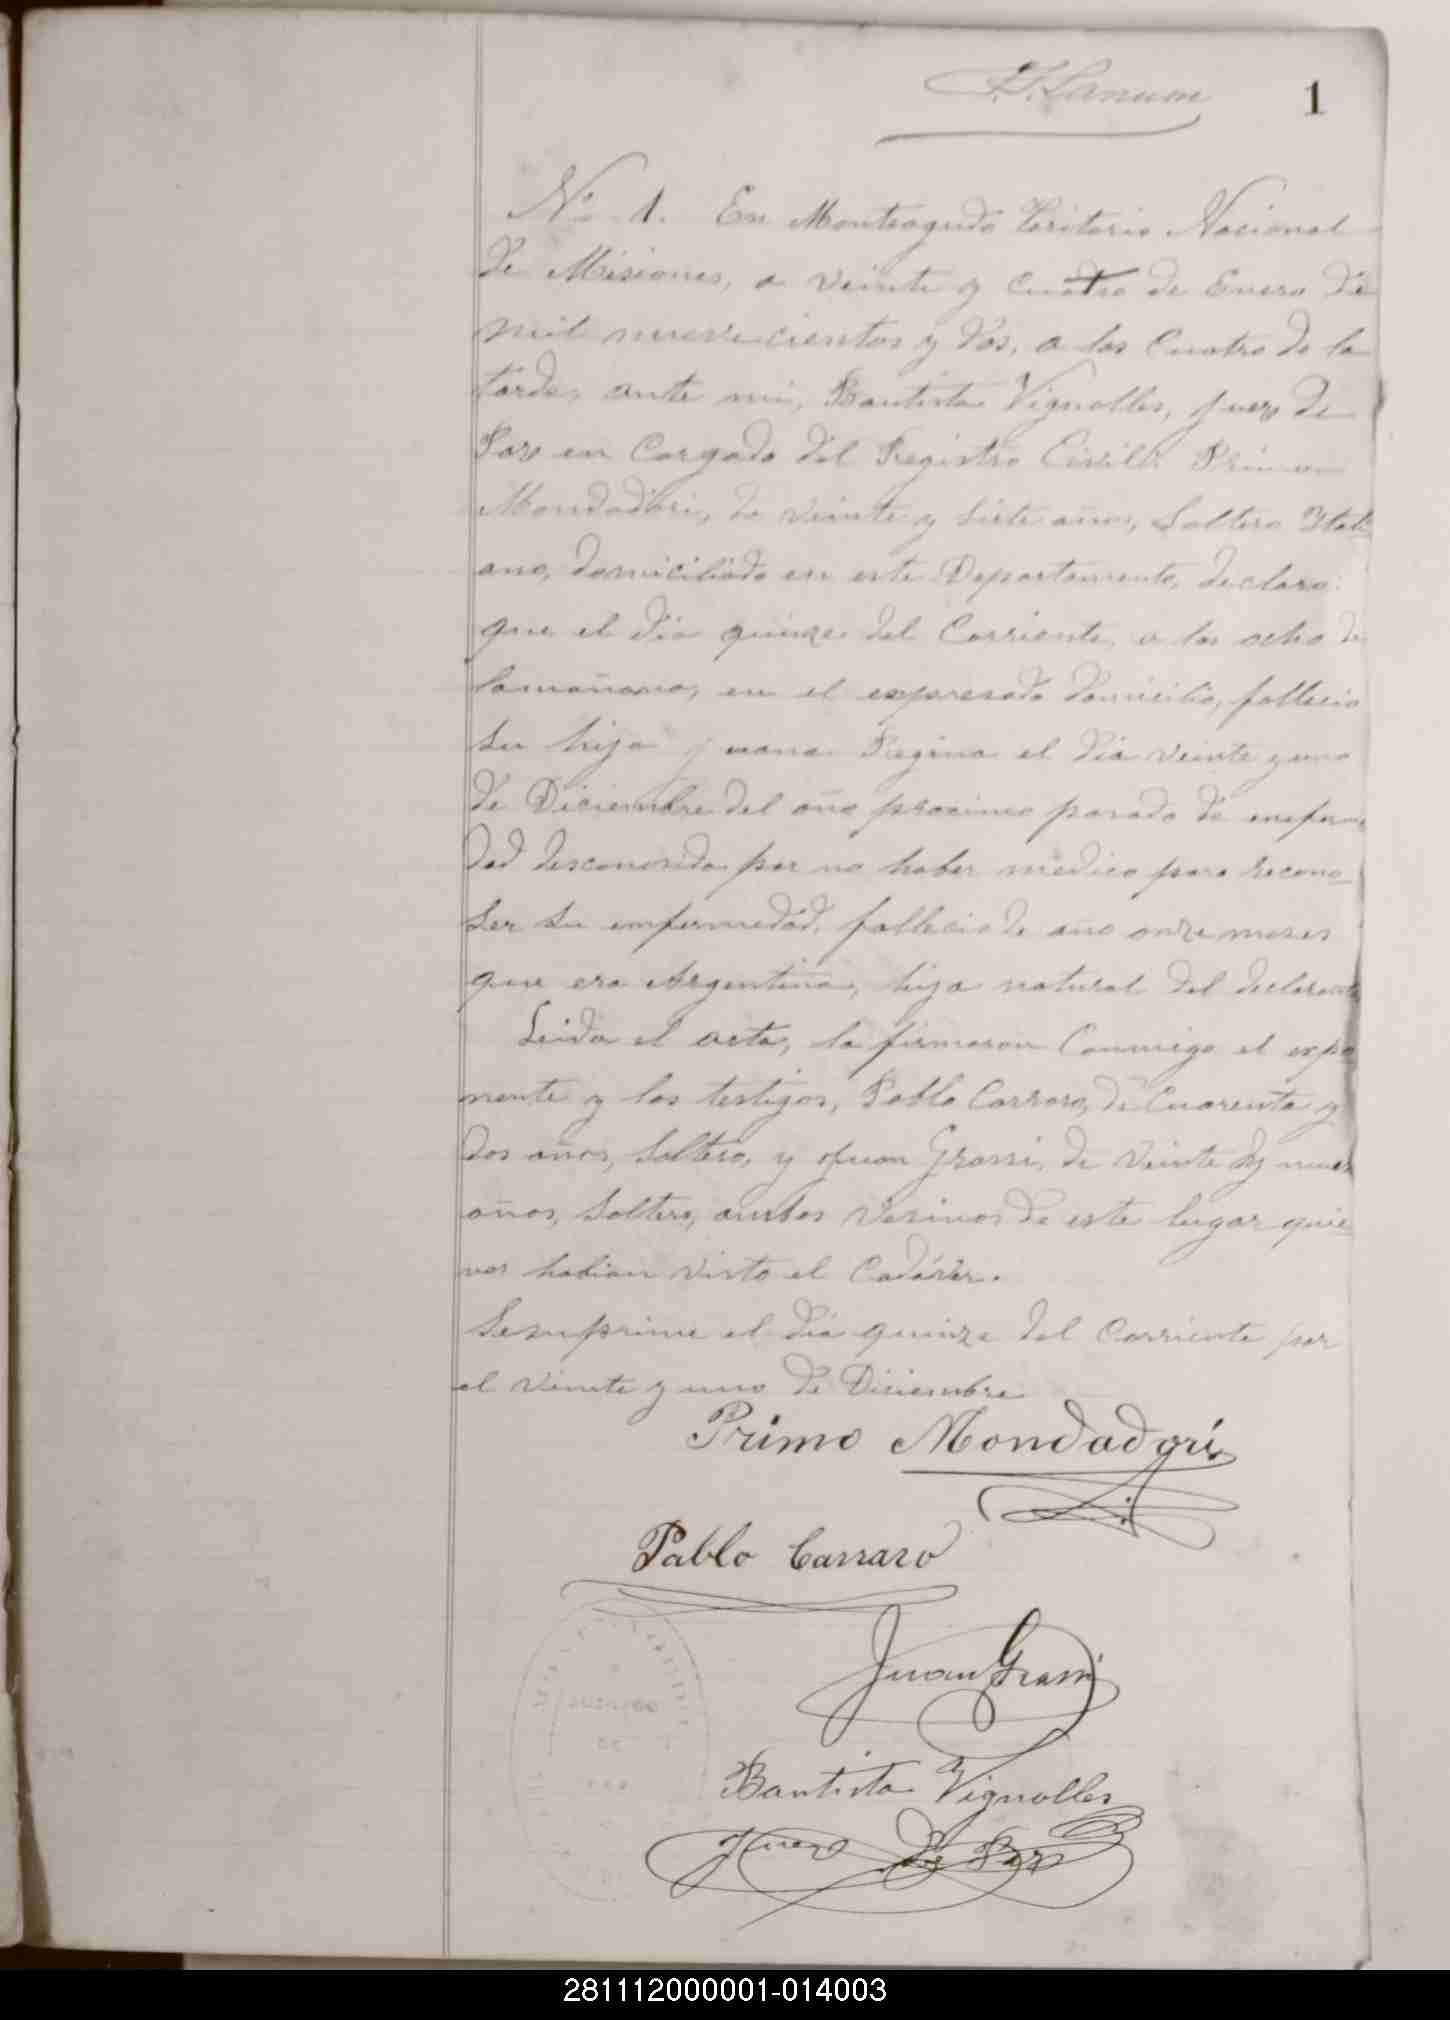 1
No 1. En Monteagudo Teritorio Nacional
de Misiones, a veinte y cuatro de Enero de
mil nuevecientos y dos, a las cuatro de la
tarde, ante mi, Bautista Vignolles, juez de
Paz en Cargado del Registro Civil: Primo
Mondadori, de veinte y siete años, Soltero Itali
ano, domiciliado en este Departamento, declaro:
que el dia quinze del Corriente, a las ocho de
lamañana, en el expresado domicilio, fallecio
su hija juana Regina el dia veinte y uno
de Diciembre del año procimo pasado de enferme
dad desconosida por no haber medico para recono-
ser su enfermedad, fallecio de año onze meses
que era Argentina, hija natural del declarante
Leida el acta, la firmaron Conmigo el expo
nente y los testigos, Pablo Carraro, de Cuarenta y
dos años, Soltero, y Juan Grassi, de veinte y nueve
años, Soltero, ambos vesinos de este lugar quie-
nes habian visto el Cadáver.
Sesuprime el dia quinze del Corriente por
el veinte y uno de Diciembre
Primo Mondadori
Pablo Carraro
Juan Grassi
Bautista Vignolles
Juez de Paz
281112000001-014003